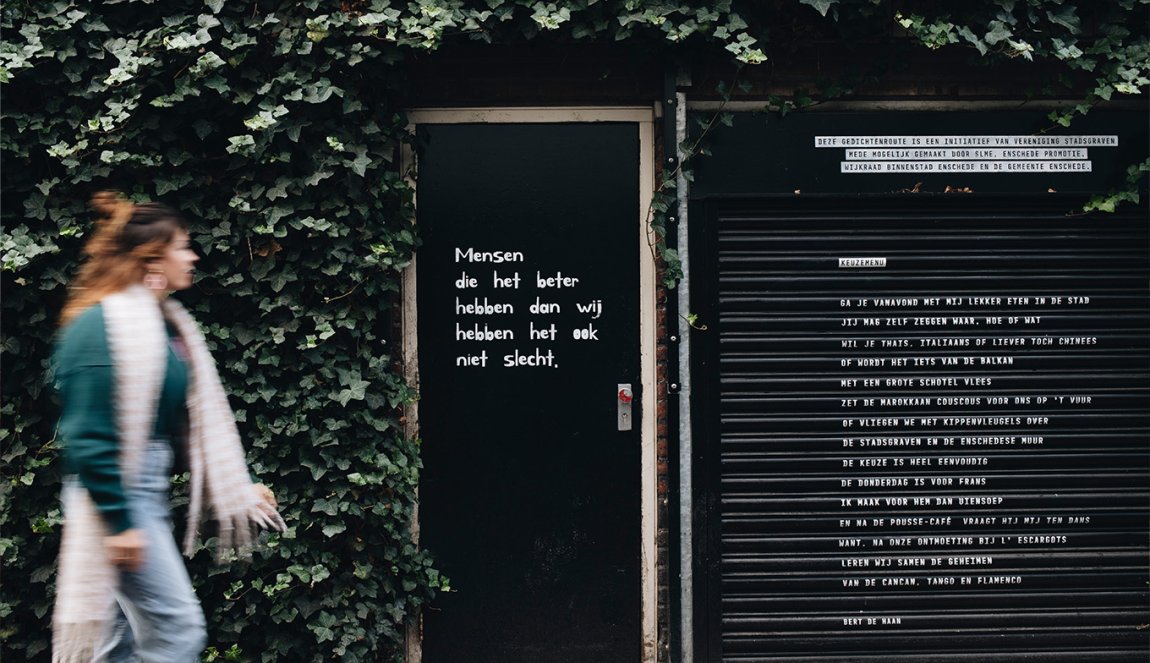 Mensen
die het beter
hebben dan wij
hebben het ook
niet slecht.
DEZE GEDICHTENROUTE IS EEN INITIATIEF VAN VERENIGING STADSGRAVEN
MEDE MOGELIJK GEMAAKT DOOR SLME, ENSCHEDE PROMOTIE,
WIJKRAAD BINNENSTAD ENSCHEDE EN DE GEMEENTE ENSCHEDE.
KEUZEMENU
GA JE VANAVOND MET MIJ LEKKER ETEN IN DE STAD
JIJ MAG ZELF ZEGGEN WAAR, HOE OF WAT
WIL JE THAIS, ITALIAANS OF LIEVER TOCH CHINEES
OF WORDT HET IETS VAN DE BALKAN
MET EEN GROTE SCHOTEL VLEES
ZET DE MAROKKAAN COUSCOUS VOOR ONS OP 'T VUUR
OF VLIEGEN WE MET KIPPENVLEUGELS OVER
DE STADSGRAVEN EN DE ENSCHEDESE MUUR
DE KEUZE IS HEEL EENVOUDIG
DE DONDERDAG IS VOOR FRANS
IK MAAK VOOR HEM DAN UIENSOEP
EN NA DE POUSSE-CAFÉ VRAAGT HIJ MIJ TEN DANS
WANT, NA ONZE ONTMOETING BIJ L' ESCARGOTS
LEREN WIJ SAMEN DE GEHEIMEN
VAN DE CANCAN, TANGO EN FLAMENCO
BERT DE HAAN